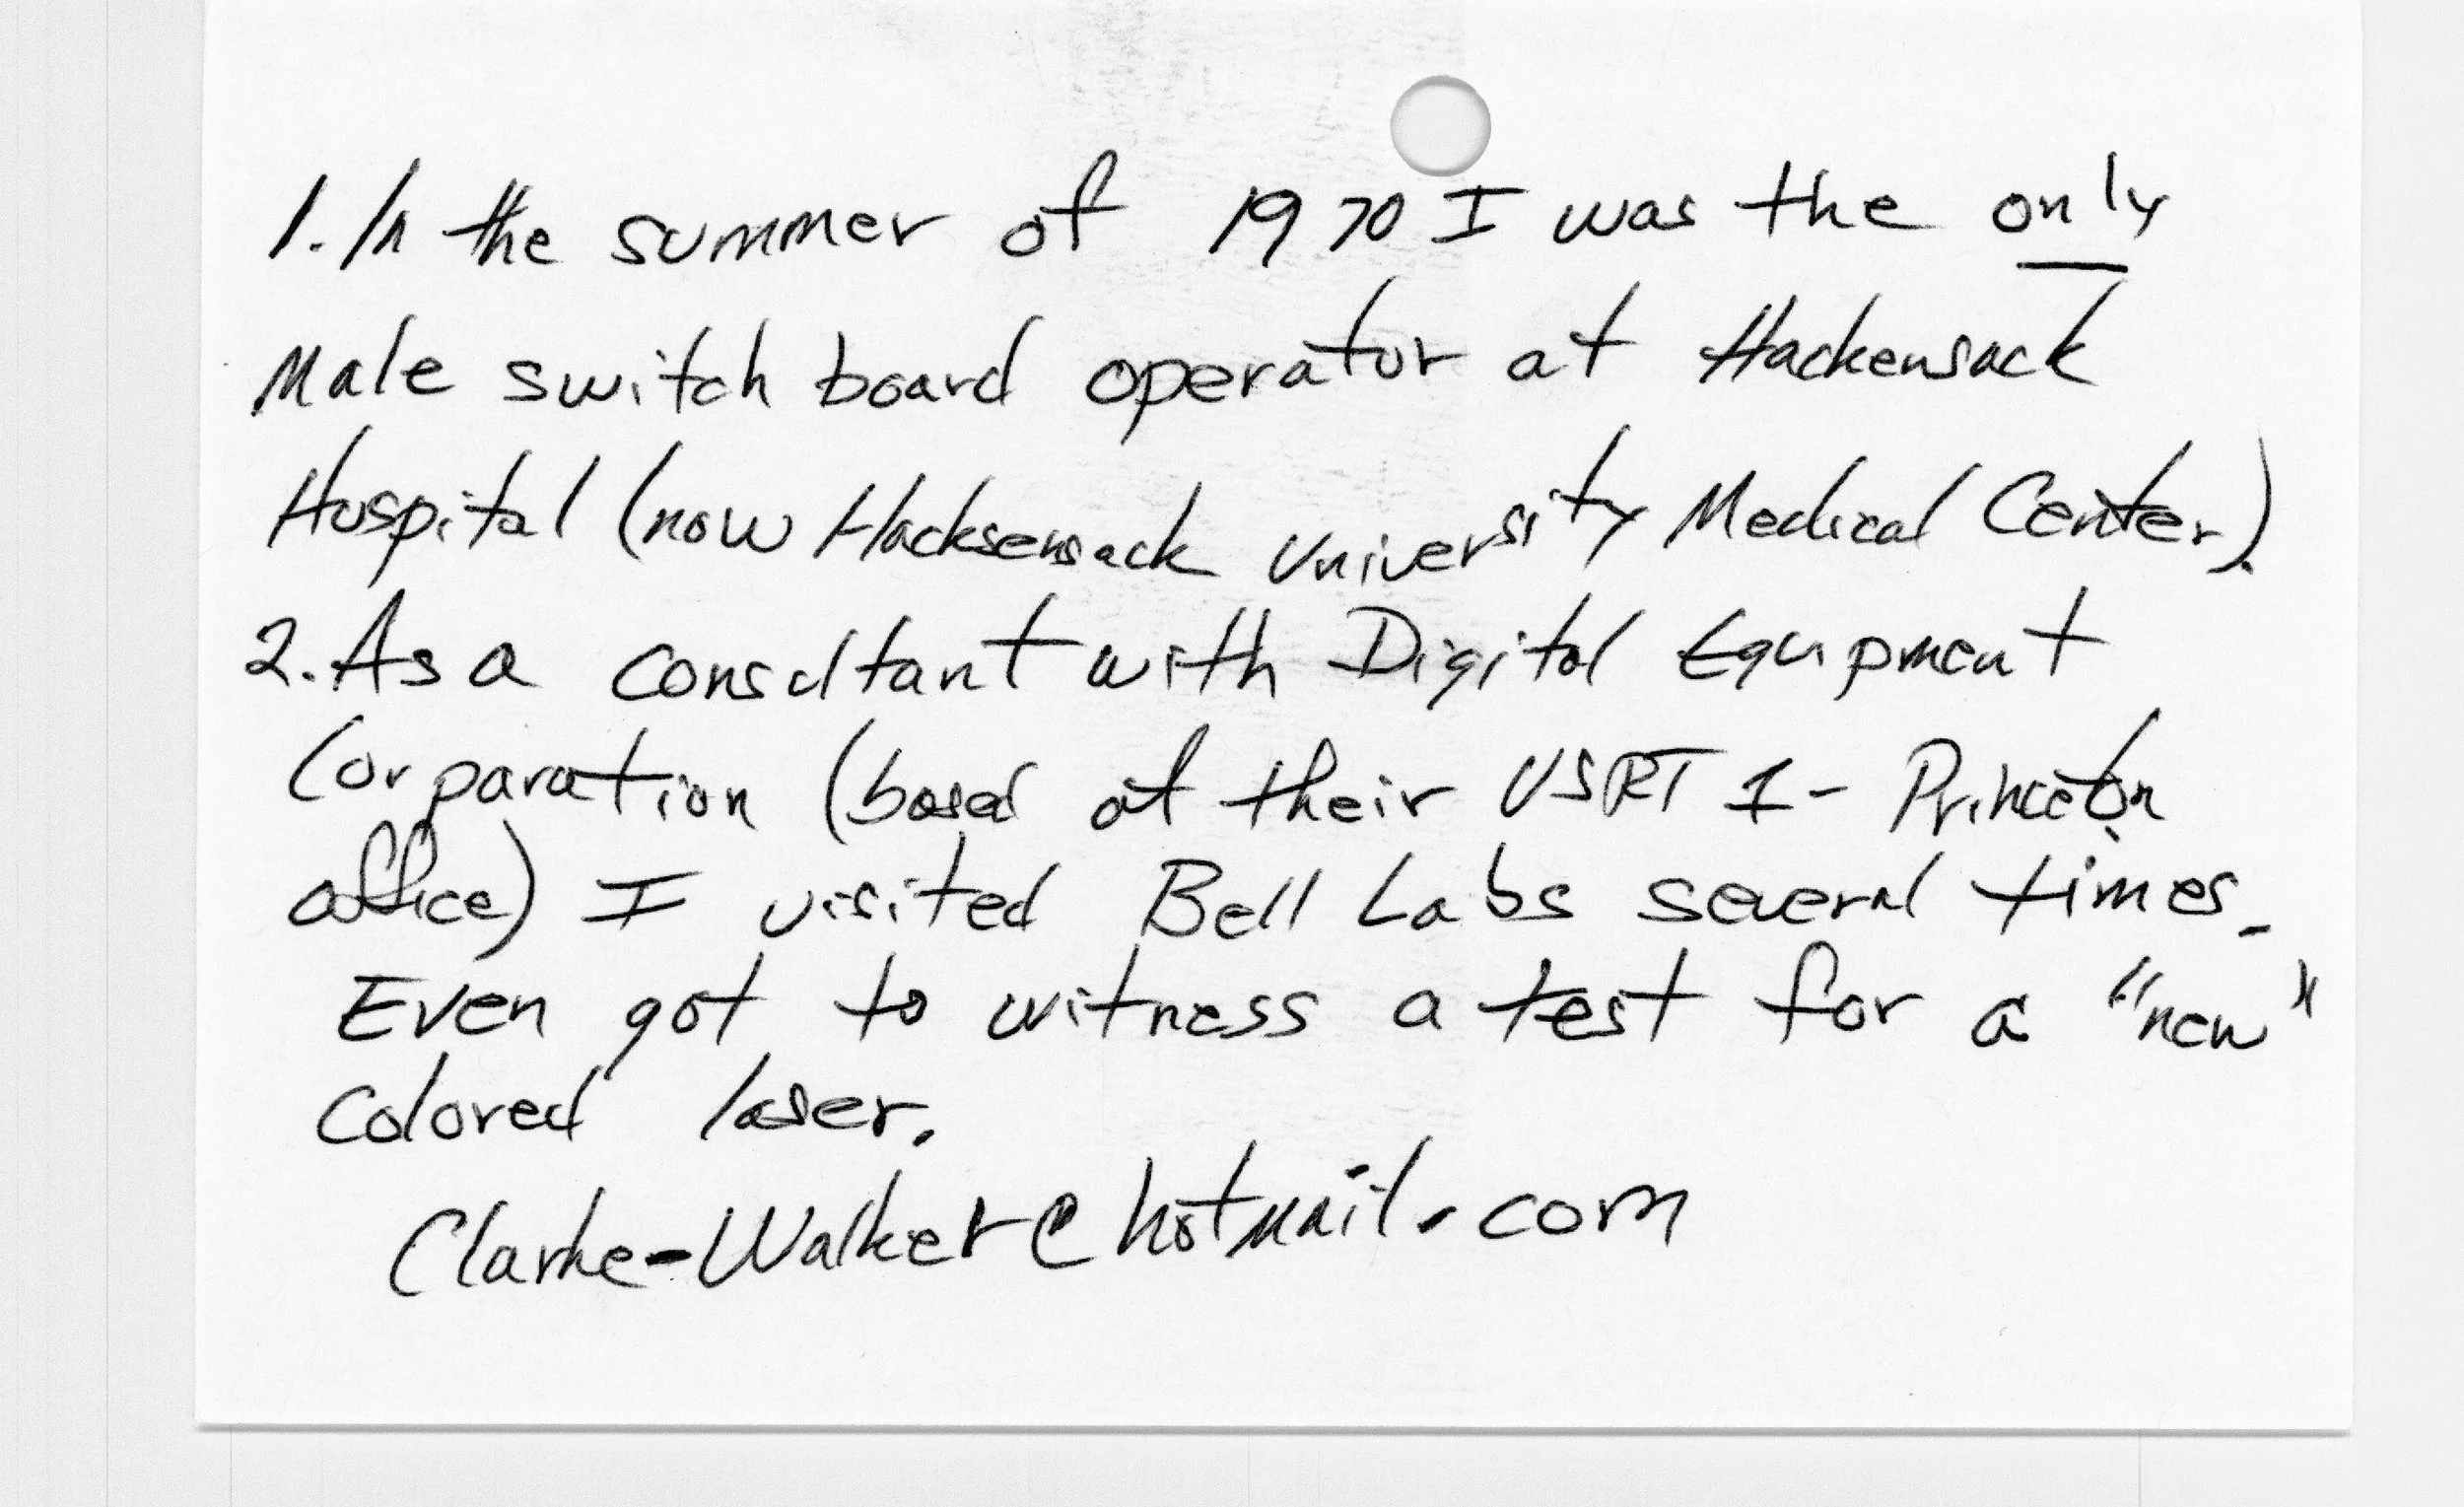 1. In the summer of 1970 I was the only
Male switch board operator at Hackensack
Hospital (now Hacksensack University Medical Center).
2. As a consultant with Digital Equipment
Corparation (based at their US RT 1 - Princeton
office) I visited Bell Labs several times.
Even got to witness a test for a "new"
Colored laser.
Clarke-Walker@hotmail.com